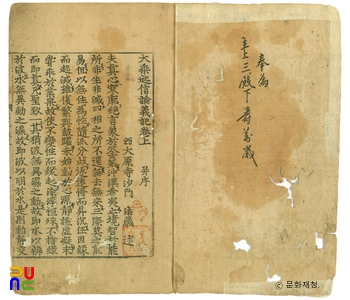 奉為
主上三殿下壽萬歲
大乘起信論義記卷上
并序
西大原寺沙門 法藏 述
夫真心寥廓絕言象於筌蹄沖漠希夷亡境智於能
所非生非滅四相之所不遷無去無來三際莫之能
易但以無住為性隨派分岐逐迷悟而升沉任因緣
而起滅雖復繁興鼓躍未始動於心源靜謐虛凝未
甞乖於業果故使不變性而緣起染淨恒殊不捨緣
而即真凡聖致一其猶波無異濕之動故即水以辨
於波水無異動之濕故即波以明於水是則動靜交
© 문화재청.